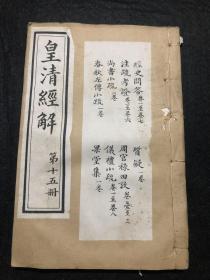 經史問答卷一至卷七
注疏考證卷一至卷六
尚書小疏一卷
春秋左傳小疏一卷
質疑一卷
周官祿田攷卷壹至三
儀禮小疏卷一至卷八
果堂集一卷
皇清經解
第十五册